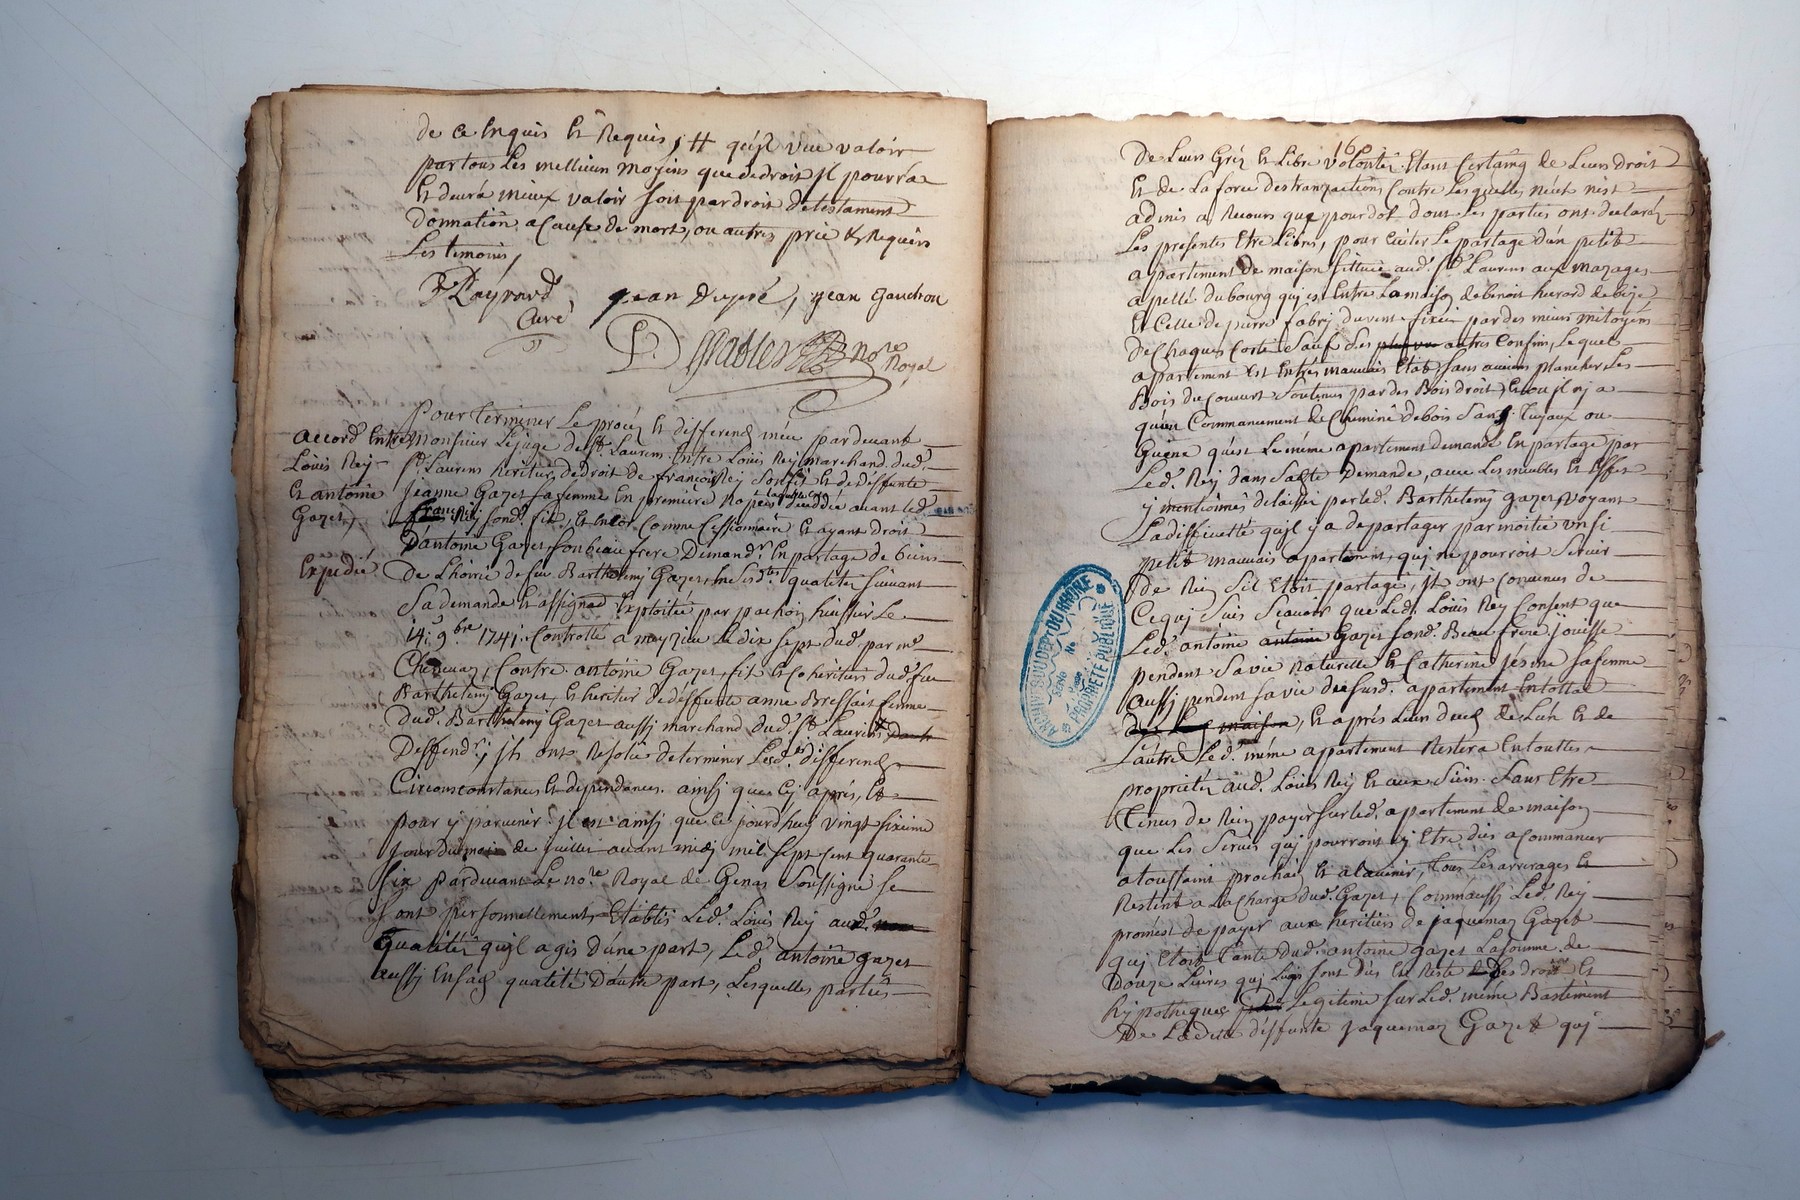 de ce Enquis Et Requis, # qu'jl vüe valoir
par tous Les mellieurs moyens que de droit jl pourra
Et deura mieux valoir soit par droit de testament
donnation a cause de mort, ou autres prié & Requis
Les temoins,
Curé
jean Dupré, jean Gauchon
No.re Royal
Pour terminer Le procés Et differend méu pardeuant
Monsieur Le juge de St. Laurens Entre Loüis Rey marchand dud.
St. Laurens heritier de droit de françois Rey son fils Et de deffunte
jeanne Gazet sa femme En premiere Nopces decedée auant led.
accord Entre
Loüis Rey
Et antoine
Gazet,
Expedié
Rey sond. fils, Et Encor Comme Cessionnaire Et ayant droit
D'antoine Gazet son beau frere Demandr. En partage de biens
De L'hoirie de feu Barthelemy Gazet, qualités suiuant
Sa demande Et assignaõn Exploitée par huissier Le
14e. 9bre 1741. Controllé a meyzieu Le dix sept dud. par mr.
Contre antoine Gazet, fils Et coheritier dud. feu
Barthelemy Gazet, Et heritier de deffunte anne Bressat femme
Dud. Barthelemy Gazet aussy marchand dud. St. Laurens
Deffendr., jls ont Resolû de terminer Lesd. differends
Circonsconstances Et dependances ainsy que Cy aprés, Et
pour y paruenir jl est ainsy que ce jourd'huy vingt sixieme
jour du mois de juillet auant midy mil sept cent quarante
six pardeuant Le nore. Royal de Genas Soussigné se
sont personnellement Etablis Led. Loüis Rey aud.
qualités qu'jl agis d'une part, Led. antoine gazet
aussy En sad. qualité D'autre part, Lesquelles parties
160
De Leurs Gréz Et Libre volonté Etant Certaing de Leurs droit
Et de La force des tranzactions Contre Lesquelles néut nest
admis a Recours que pour dol dont Les parties ont declaréz
Les presentes Etre Libres, pour Euiter Le partage d'un petit
apartement de maison sittuée aud. St. Laurens aux mazages
apellé du bourg quj est Entre La maison de benoit
Et Celle de pierre fabry par des murs mitoyens
De Chaques Costé Sauf Ses autres Confins, Lequel
apartement Est En trés mauuais Etat Sans aucuns plancher Les
Bois du Couuert Soutenus par des Bois droit, Et ou jl n'y a
qu'un Commancement de Cheminé de bois Sans Tuyaux ou
Guene qu'est Le méme apartement demandé En partage par
Led. Rey dans Sadte Demande, auec Les meubles Et Effets
y mentionnés delaissés par led. Barthelemy gazet voyant
La difficulté qu'jl y a de partager par moitié un si
petit mauuais apartement, quj ne pourroit Seruir
De Rien S'jl Etoit partagé, jls ont Conuenus de
Ce quj Suis Sçauoir que Led. Loüis Rey Consent que
Led. antoine Gazet sond. Beau frere joüisse
pendent Sa vie naturelle Et Catherine sa femme
aussy pendent sa vie du Susd. apartement En total
Et aprés Leurs decés de L'un Et de
L'autre Led. méme apartement Restera En toutte
proprietéz aud. Loüis Rey Et aux Siens Sans Etre
Tenus de Rien payer sur led. apartement de maison
que Les Seruis quj pourront y Etre dûs a Commancer
a toussaint prochain Et alauenir, Tous Les arrerages Et
Restent a La Charge dud. Gazet, Comm'aussy Led. Rey
promést de payer aux heritiers de jaquemaz Gazet
quj Etoit Tante dud. antoine gazet La somme de
Douze Liures quj Luy sont dûs de Reste de Ses droits Et
hypothéques Legitime sur Led. méme Bastiment
De Ladite deffunte jaquemaz Gazet quj
ARCHIVES DU DEPT. DU RHONE
PROPRIÉTÉ PUBLIQUE